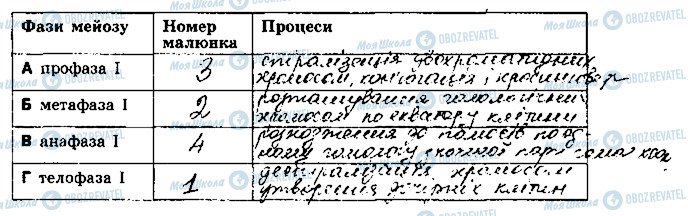 Фази мейозу Номер малюнка Процеси
А профаза І 3 спіралізація двохроматидних
хромосом, кон'югація, кросинговер
Б метафаза І 2 розташування гомологічних
хромосом по екватору клітини
В анафаза І 4 розходження до полюсів по од-
ному гомологу кожної пари
Г телофаза І 1 деспіралізація хромосом
утворення дочірніх клітин
Моя Школа OBOZREVATEL